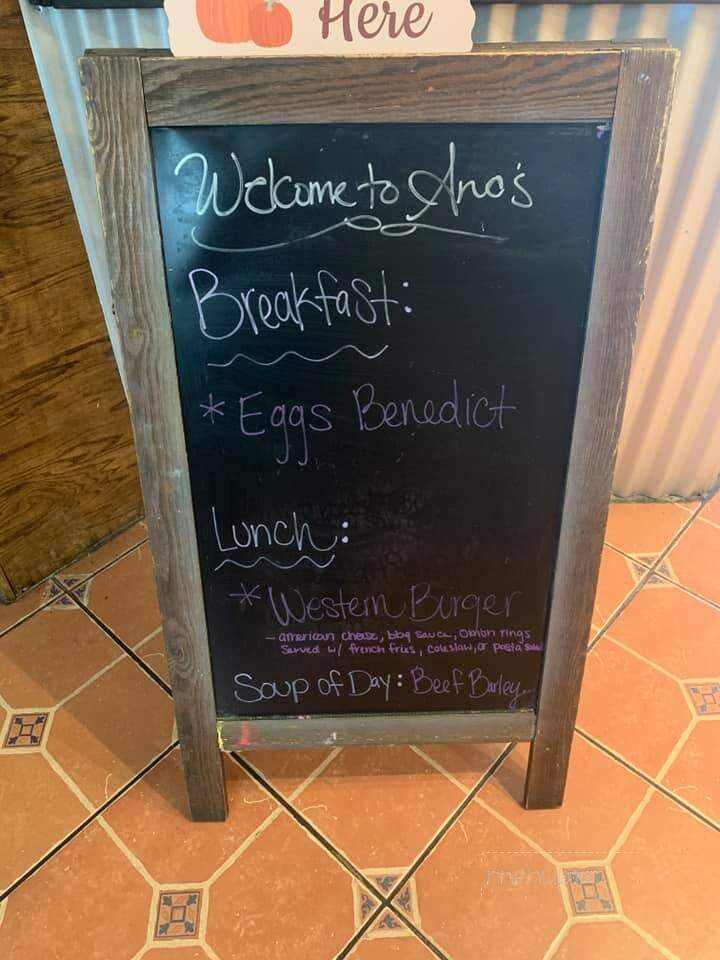 Here
Welcome to Ana's
Breakfast:
* Eggs Benedict
Lunch:
* Western Burger
- american cheese, bbq sauce, onion rings
Served w/ french fries, coleslaw, or pasta salad
Soup of Day: Beef Barley